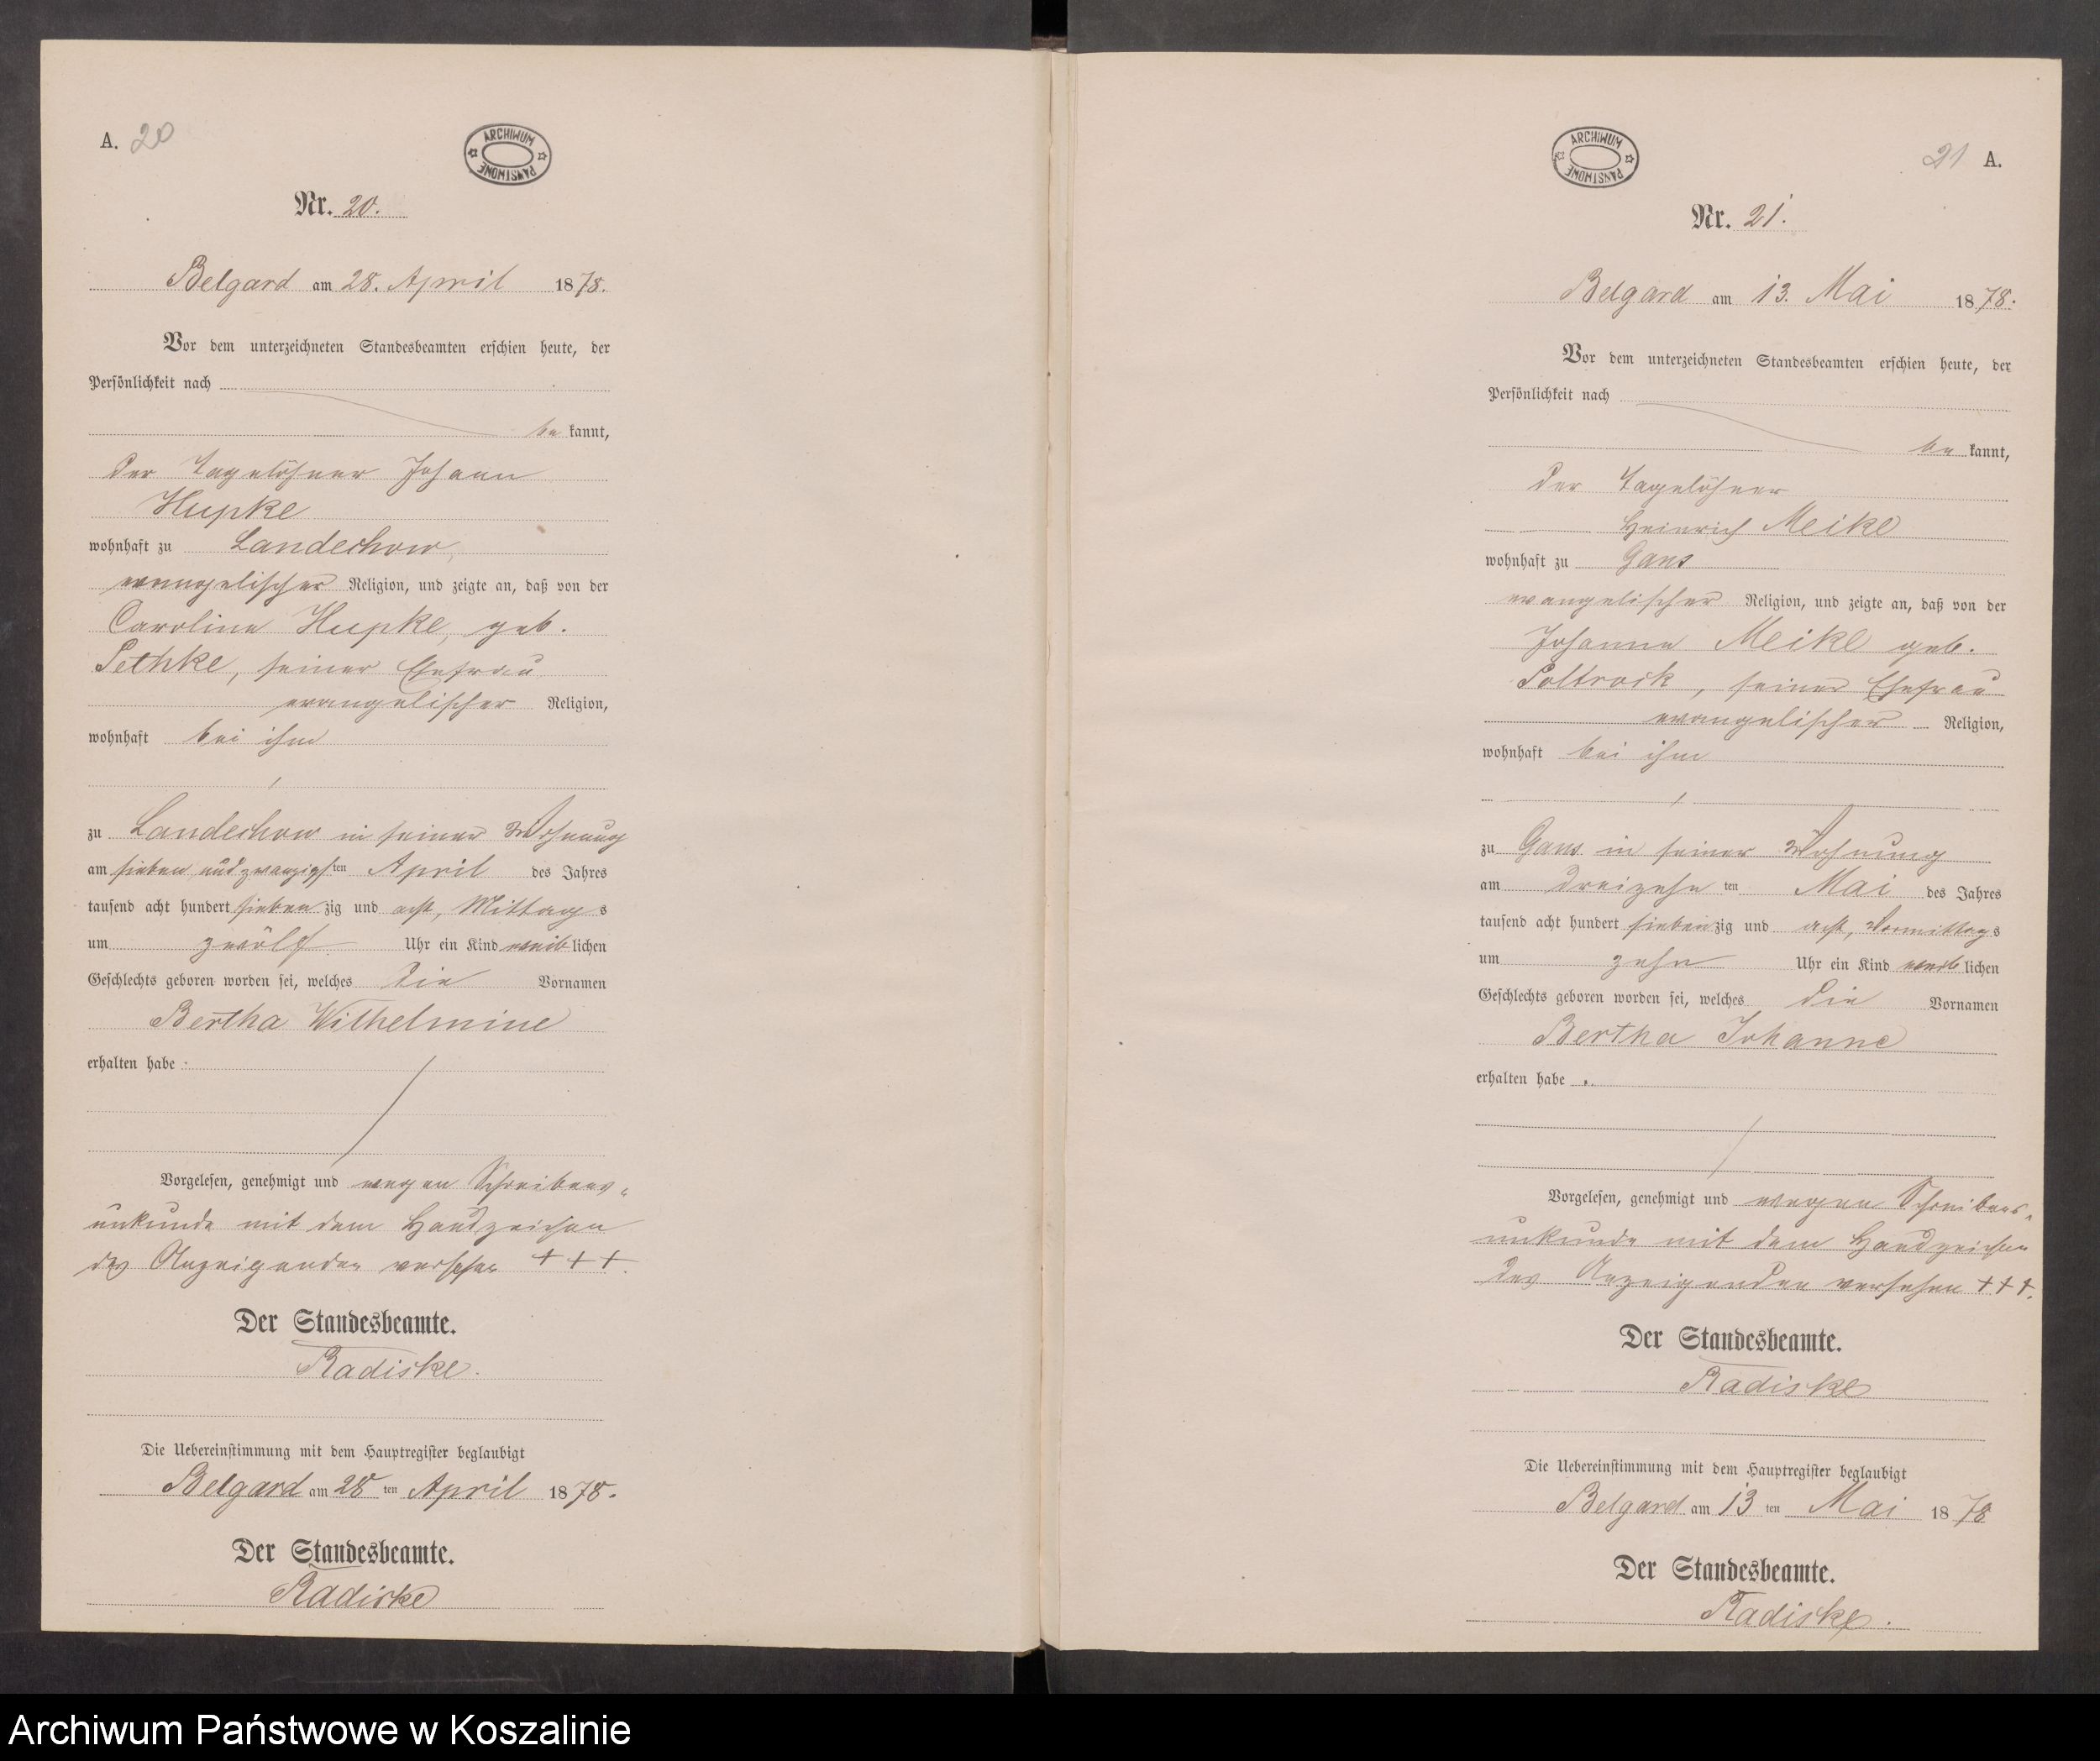 A. 20
ARCHIWUM PAŃSTWOWE
Nr. 20.
Belgard am 28. April 1878.
Vor dem unterzeichneten Standesbeamten erschien heute, der
Persönlichkeit nach
be kannt,
der Tagelöhner Johann
Hupke
wohnhaft zu Landechow,
evangelischer Religion, und zeigte an, daß von der
Caroline Hupke, geb.
Pethke, seiner Ehefrau
evangelischer Religion,
wohnhaft bei ihm
zu Landechow in seiner Wohnung
am sieben und zwanzigsten April des Jahres
tausend acht hundert siebenzig und acht, Mittags
um zwölf Uhr ein Kind weiblichen
Geschlechts geboren worden sei, welches die Vornamen
Bertha Wilhelmine
erhalten habe.
Vorgelesen, genehmigt und wegen Schreibens-
unkunde mit dem Handzeichen
des Anzeigenden versehen +++.
Der Standesbeamte.
Radiske.
Die Uebereinstimmung mit dem Hauptregister beglaubigt
Belgard am 28ten April 1878.
Der Standesbeamte.
Radiske
21 A.
ARCHIWUM PAŃSTWOWE
Nr. 21.
Belgard am 13. Mai 1878.
Vor dem unterzeichneten Standesbeamten erschien heute, der
Persönlichkeit nach
be kannt,
der Tagelöhner
Heinrich Meike
wohnhaft zu Gans
evangelischer Religion, und zeigte an, daß von der
Johanna Meike geb.
Poltrock, seiner Ehefrau
evangelischer Religion,
wohnhaft bei ihm
zu Gans in seiner Wohnung
am dreizehnten Mai des Jahres
tausend acht hundert siebenzig und acht, Vormittags
um zehn Uhr ein Kind weiblichen
Geschlechts geboren worden sei, welches die Vornamen
Bertha Johanne
erhalten habe.
Vorgelesen, genehmigt und wegen Schreibens-
unkunde mit dem Handzeichen
des Anzeigenden versehen +++.
Der Standesbeamte.
Radiske
Die Uebereinstimmung mit dem Hauptregister beglaubigt
Belgard am 13ten Mai 1878
Der Standesbeamte.
Radiske.
Archiwum Państwowe w Koszalinie